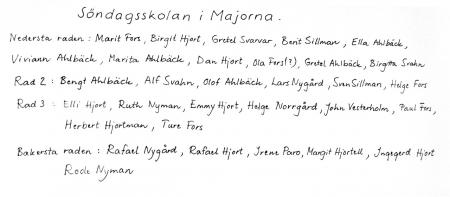 Söndagsskolan i Majorna.
Nedersta raden : Marit Fors, Birgit Hjort, Gretel Svarvar, Berit Sillman, Ella Ahlbäck,
Viviann Ahlbäck, Marita Ahlbäck, Dan Hjort, Ola Fors(?), Gretel Ahlbäck, Birgitta Svahn
Rad 2 : Bengt Ahlbäck, Alf Svahn, Olof Ahlbäck, Lars Nygård, Sven Sillman, Helge Fors
Rad 3 : Elli Hjort, Ruth Nyman, Emmy Hjort, Helge Norrgård, John Vesterholm, Paul Fors,
Herbert Hjortman, Ture Fors
Bakersta raden : Rafael Nygård, Rafael Hjort, Irene Paro, Margit Hjortell, Ingegerd Hjort
Rode Nyman